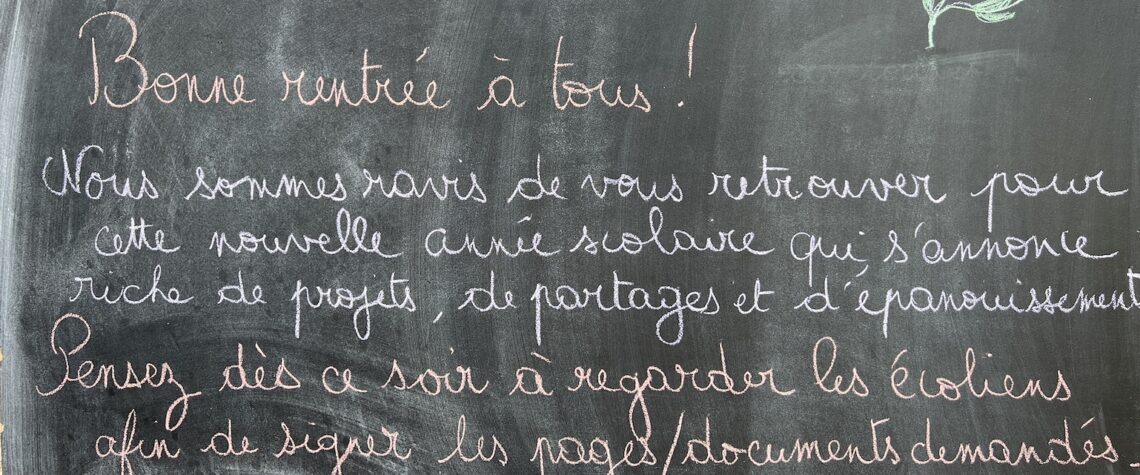 Bonne rentrée à tous !
Nous sommes ravis de vous retrouver pour
cette nouvelle année scolaire qui s'annonce
riche de projets, de partages et d'épanouissement
Pensez dès ce soir à regarder les écoliens
afin de signer les pages/documents demandés